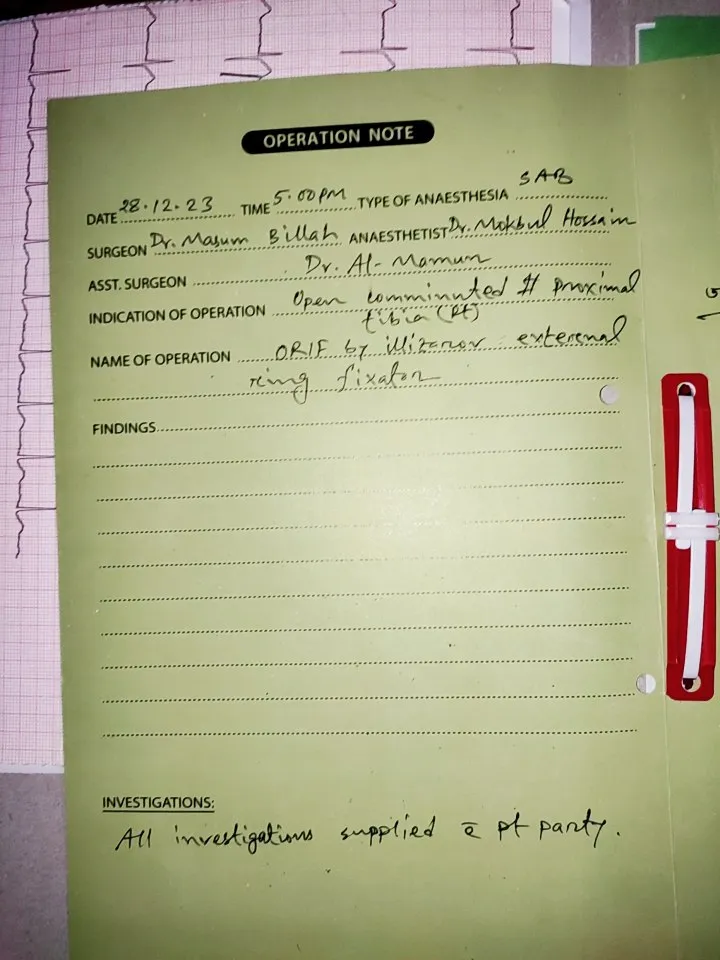 OPERATION NOTE
DATE 28.12.23 TIME 5.00 PM TYPE OF ANAESTHESIA SAB
SURGEON Dr. Masum Billah ANAESTHETIST Dr. Mokbul Hossain
ASST. SURGEON Dr. Al-Mamun
INDICATION OF OPERATION Open comminuted # proximal
tibia (Rt)
NAME OF OPERATION ORIF by illizarov external
ring fixator
FINDINGS
INVESTIGATIONS:
All investigations supplied c̄ pt party.